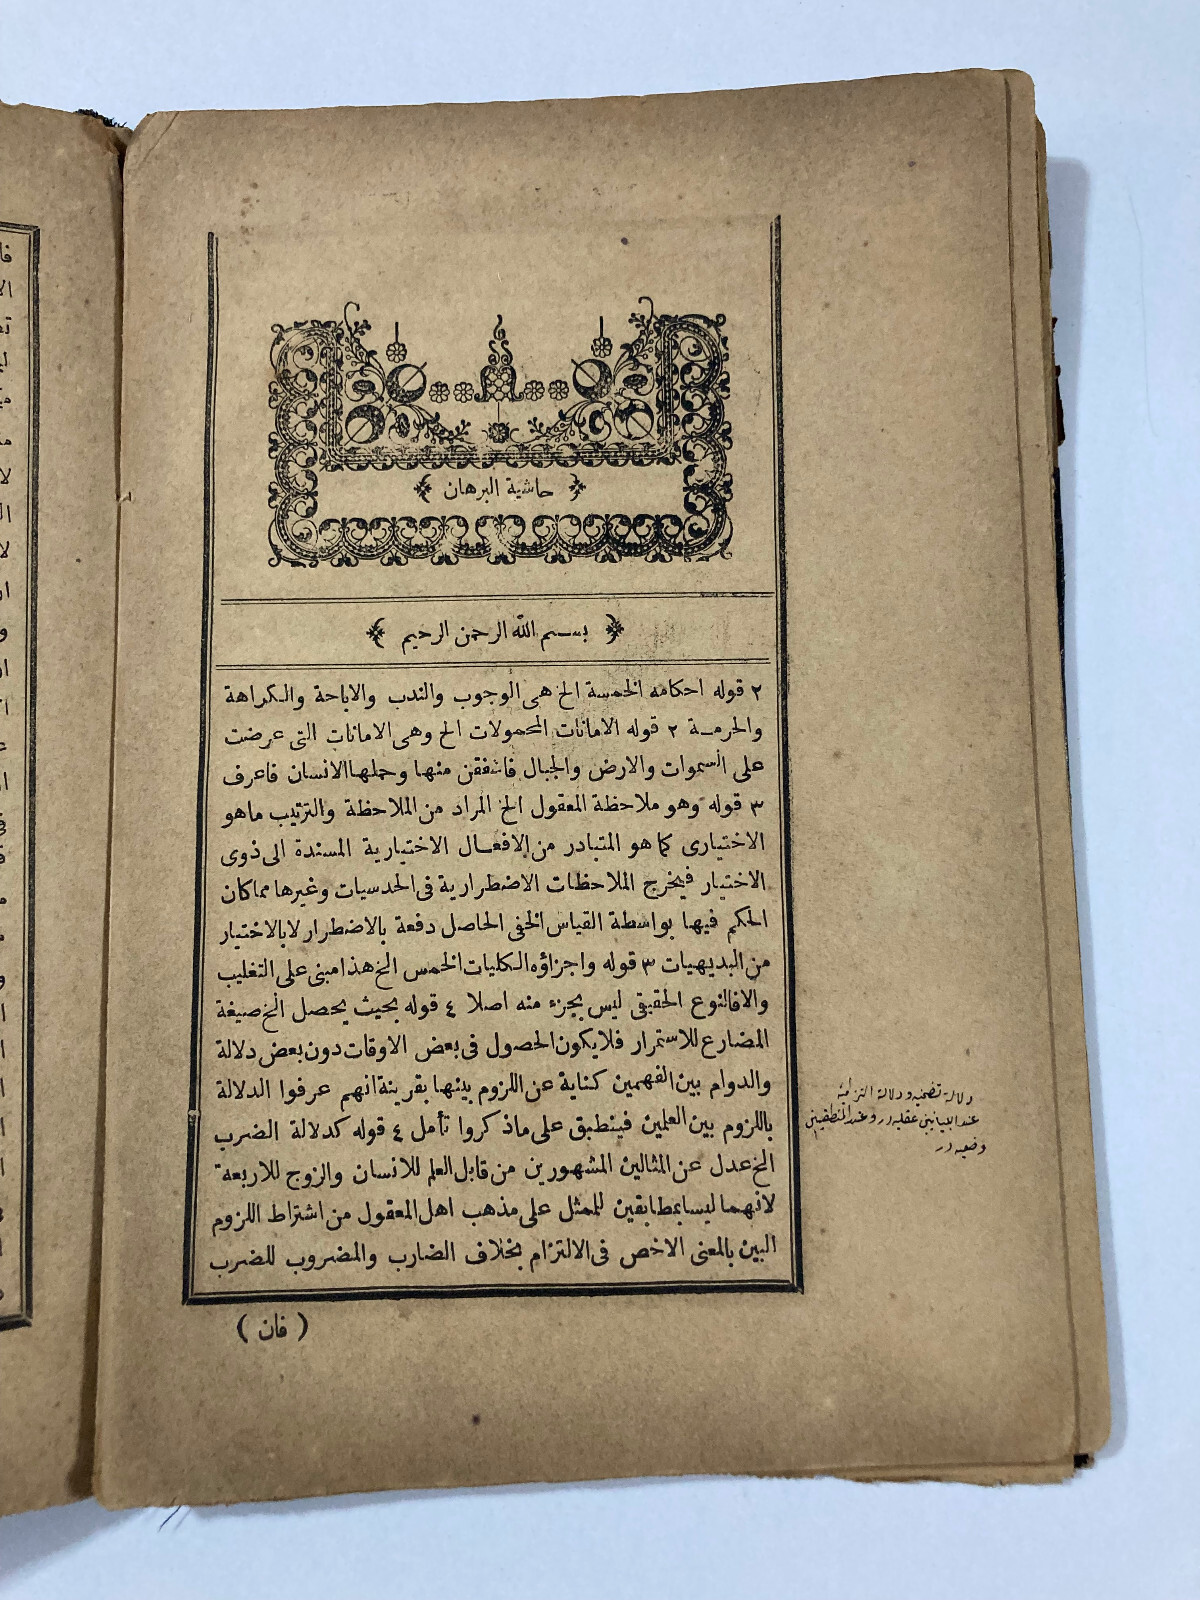 حاشية البرهان
بسم الله الرحمن الرحيم
٢ قوله احكامه الخمسة الخ هى الوجوب والندب والاباحة والكراهة
والحرمة ٢ قوله الامانات المحمولات الخ وهى الامانات التى عرضت
على السموات والارض والجبال فاشفقن منها وحملها الانسان فاعرف
٣ قوله وهو ملاحظة المعقول الخ المراد من الملاحظة والترتيب ماهو
الاختيارى كما هو المتبادر من الافعال الاختيارية المسندة الى ذوى
الاختيار فيخرج الملاحظات الاضطرارية فى الحدسيات وغيرها مما كان
الحكم فيها بواسطة القياس الخفى الحاصل دفعة بالاضطرار لابالاختيار
من البديهيات ٣ قوله واجزاؤه الكليات الخمس الخ هذا مبنى على التغليب
والافالنوع الحقيقى ليس بجزء منه اصلا ٤ قوله بحيث يحصل الخ صيغة
المضارع للاستمرار فلايكون الحصول فى بعض الاوقات دون بعض دلالة
والدوام بين الفهمين كناية عن اللزوم بينها بقرينة انهم عرفوا الدلالة
باللزوم بين العلمين فينطبق على ماذكروا تأمل ٤ قوله كدلالة الضرب
الخ عدل عن المثالين المشهورين من قابل العلم للانسان والزوج للاربعة
لانهما ليسا بمطابقين للممثل على مذهب اهل المعقول من اشتراط اللزوم
البين بالمعنى الاخص فى الالتزام بخلاف الضارب والمضروب للضرب
( فان )
دلالة تضمنيه ودلالة التزاميه
عند البيانيين عقليه در وعند المنطقيين
وضعيه در
فا